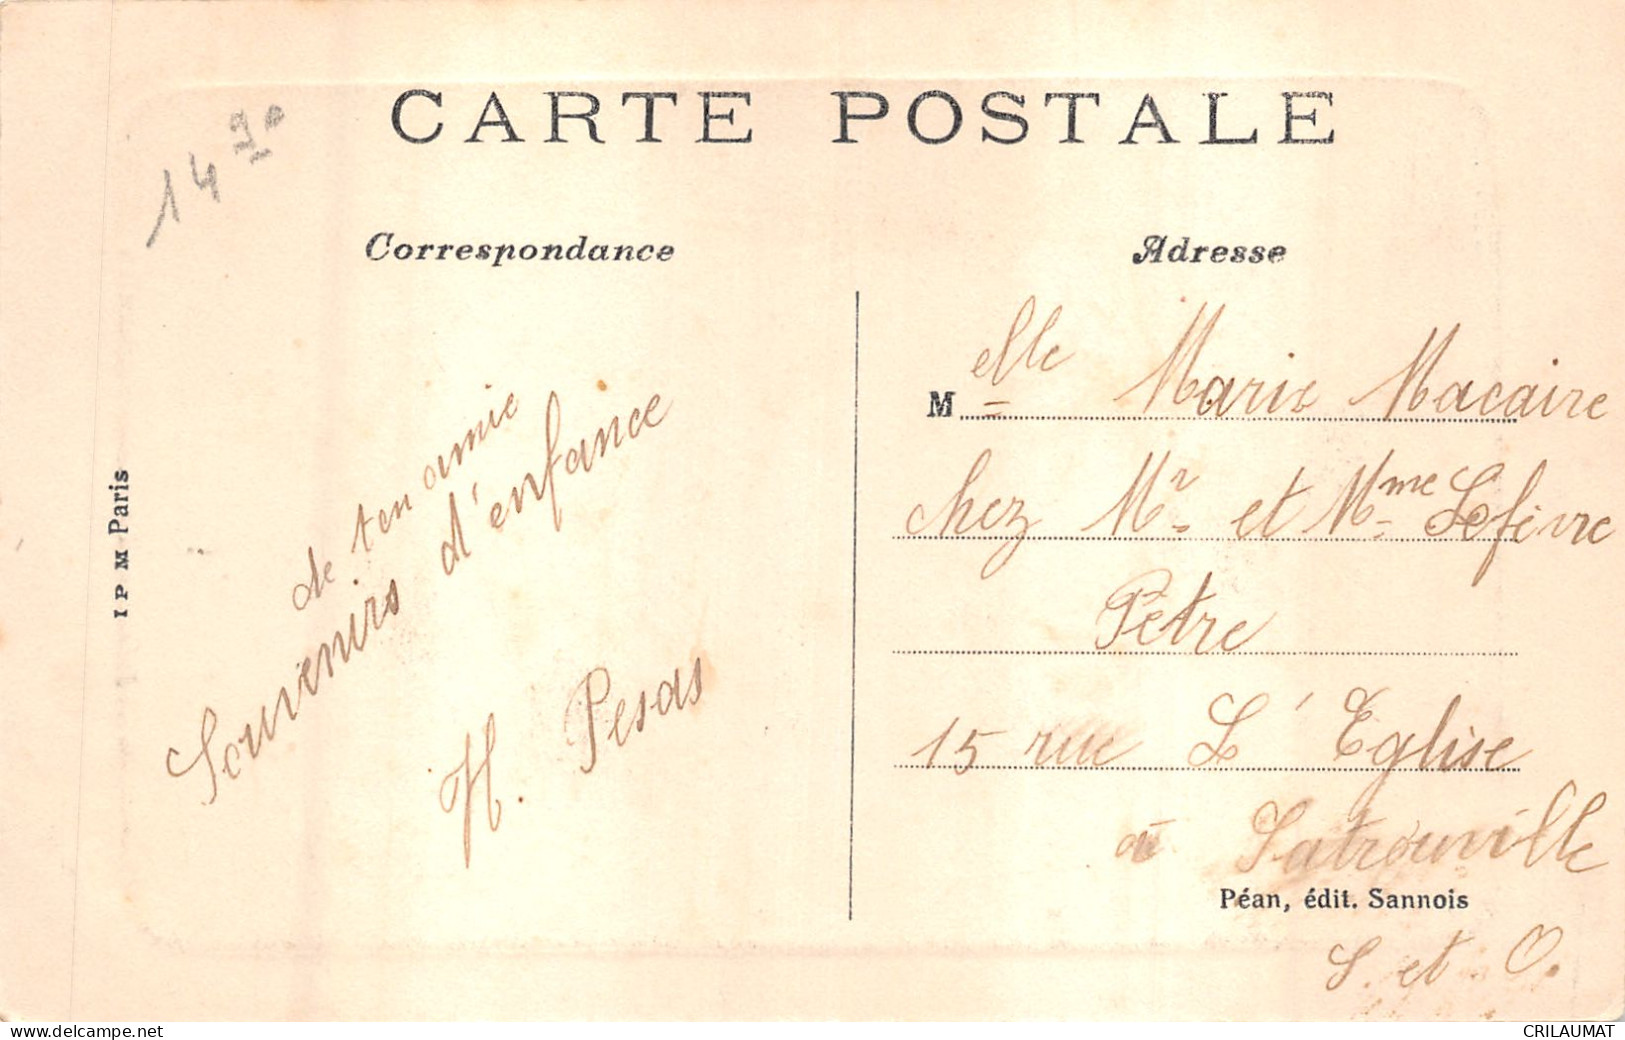 CARTE POSTALE
Correspondance
de ton amie
Souvenirs d'enfance
H. Pesas
I P M Paris
Adresse
Melle Marie Macaire
chez Mr et Mme Lefèvre
Petre
15 rue L'Eglise
à Satrouville
Péan, édit. Sannois
S. et O.
delcampe.net
CRILAUMAT